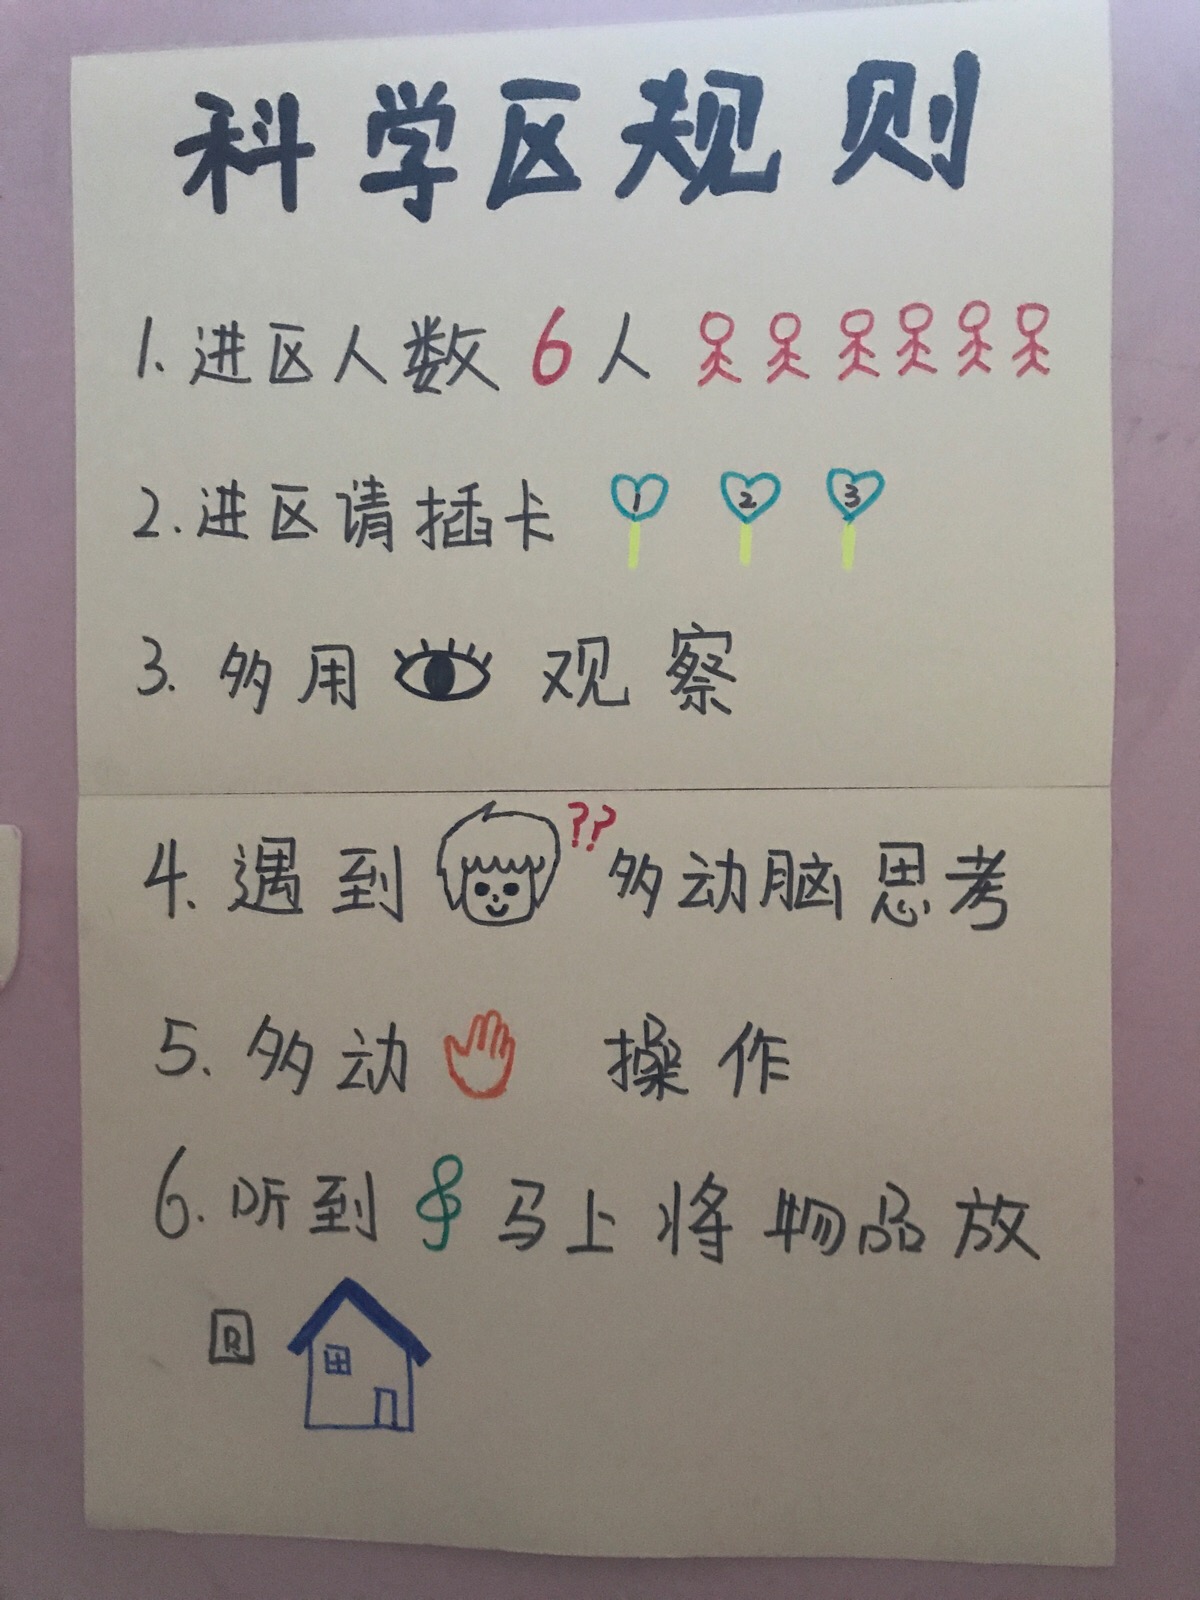 科学区规则
1. 进区人数 6 人
2. 进区请插卡 1 2 3
3. 多用 观察
4. 遇到 ?? 多动脑思考
5. 多动 操作
6. 听到 马上将物品放
回